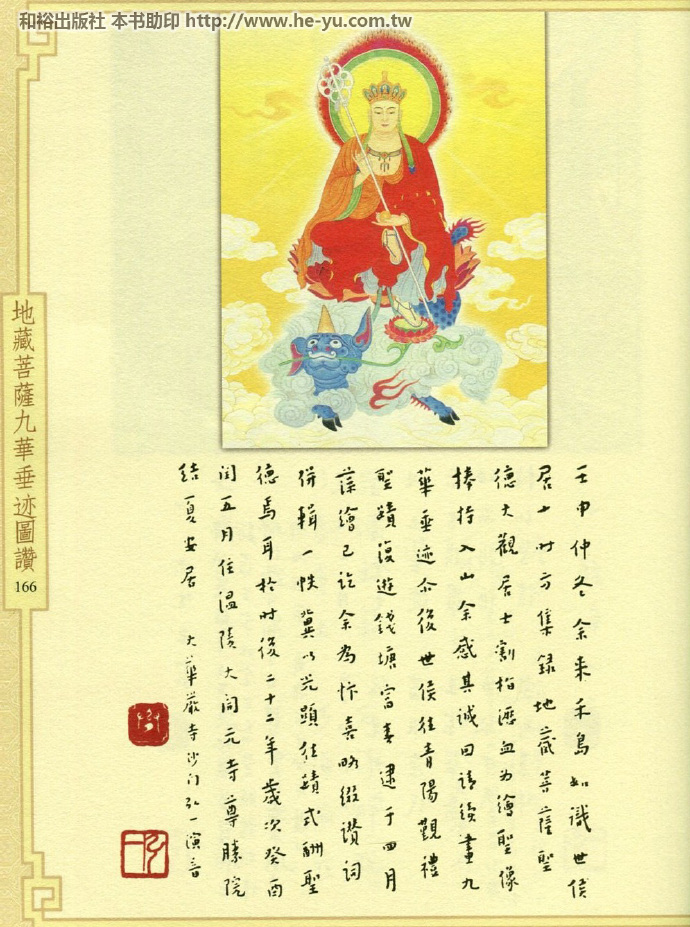 和裕出版社 本书助印 http://www.he-yu.com.tw
地藏菩薩九華垂迹圖讚
166
壬申仲冬余来禾島始識世侯
居士時方集録地藏菩薩聖
德大觀居士割指瀝血为繪聖像
捧持入山余感其誠回請續畫九
華垂迹尒後世侯往青陽觀禮
聖蹟復遊錢塘富春逮于四月
藻繪已訖余為忭喜略綴讚詞
併輯一帙冀以光顯往蹟式酬聖
德焉耳於时後二十二年歲次癸酉
閏五月住温陵大開元寺尊勝院
結夏安居 大華嚴寺沙门弘一演音